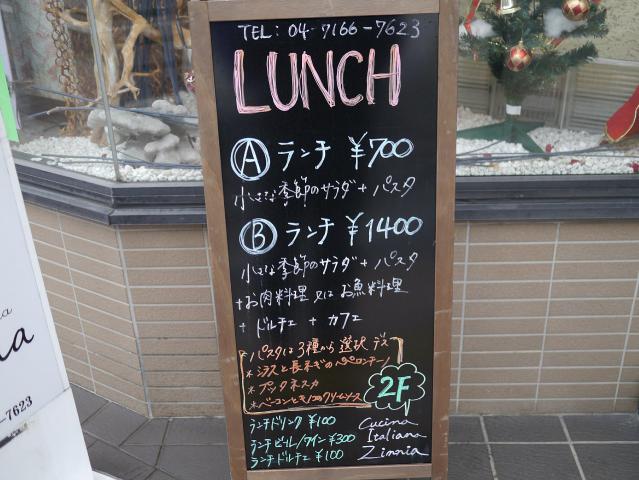 TEL: 04-7166-7623
LUNCH
Ⓐ ランチ ¥700
小さな季節のサラダ + パスタ
Ⓑ ランチ ¥1400
小さな季節のサラダ + パスタ
+ お肉料理 又は お魚料理
+ ドルチェ + カフェ
パスタは3種から選択デス
*シラスと長ネギのペペロンチーノ
*プッタネスカ
*ベーコンときのこのクリームソース
2F
ランチドリンク ¥100
ランチビール/ワイン ¥300
ランチドルチェ ¥100
Cucina
Italiana
Zinnia
na
-7623